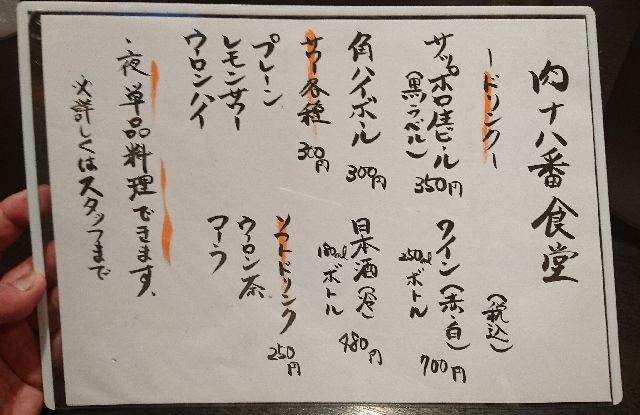 肉十八番食堂
(税込)
ードリンクー
サッポロ生ビール
(黒ラベル) 350円
角ハイボール
300円
サワー各種
300円
プレーン
レモンサワー
ウーロンハイ
ワイン(赤・白)
250mlボトル 700円
日本酒(冷)
180mlボトル 480円
ソフトドリンク
250円
ウーロン茶
コーラ
・夜 単品料理できます。
※詳しくはスタッフまで